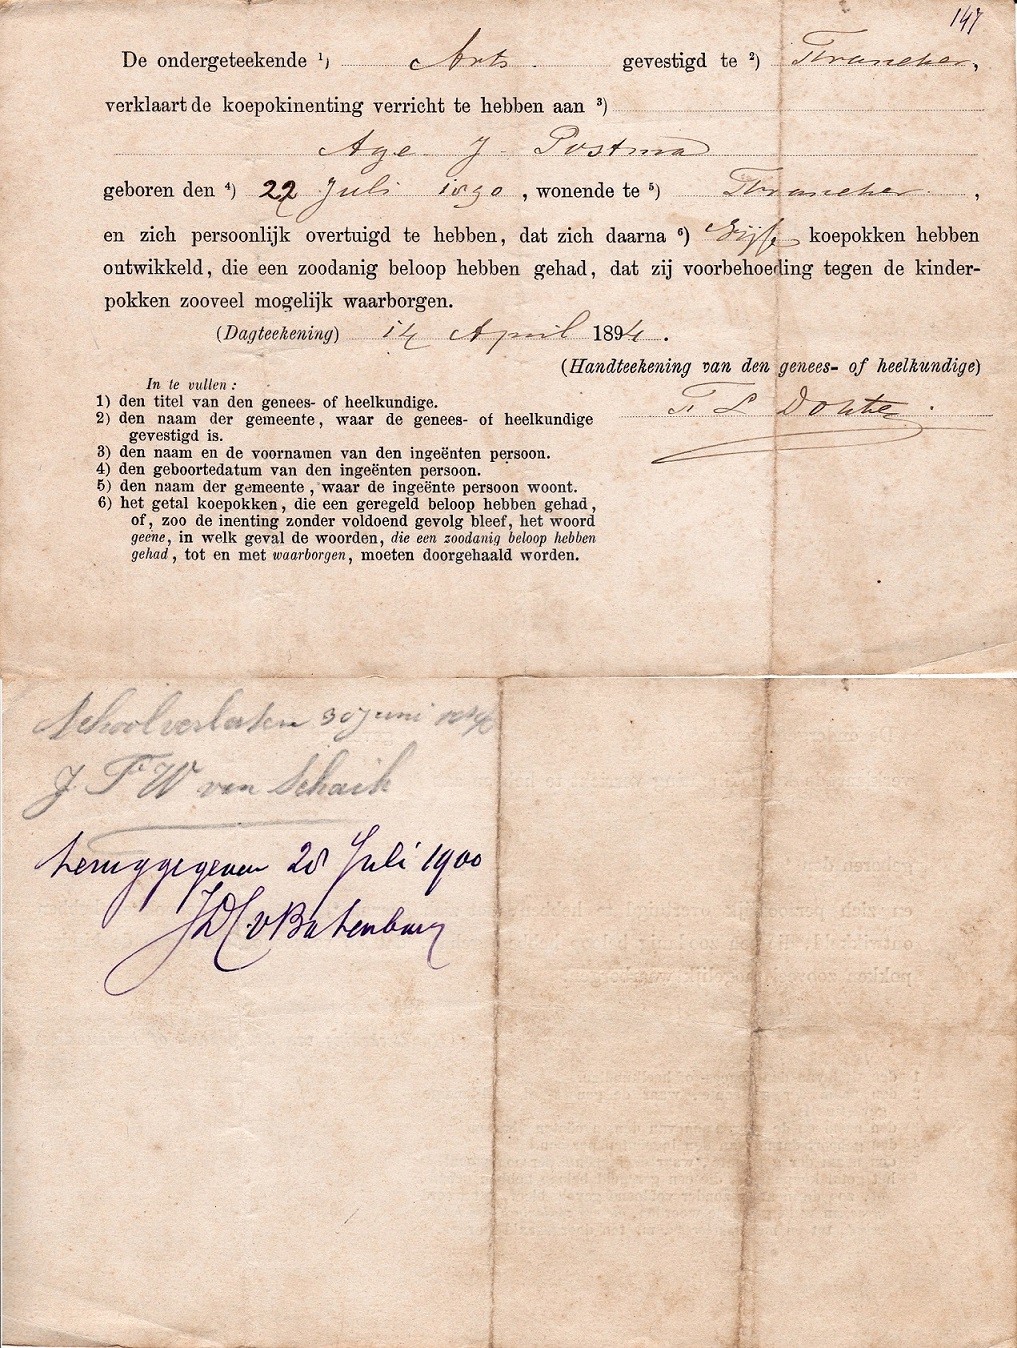 147
De ondergeteekende ¹) Arts. gevestigd te ²) Franeker,
verklaart de koepokinenting verricht te hebben aan ³)
Age J. Postma
geboren den ⁴) 22 Juli 1890, wonende te ⁵) Franeker,
en zich persoonlijk overtuigd te hebben, dat zich daarna ⁶) Vijf koepokken hebben
ontwikkeld, die een zoodanig beloop hebben gehad, dat zij voorbehoeding tegen de kinder-
pokken zooveel mogelijk waarborgen.
(Dagteekening) 14 April 1894.
(Handteekening van den genees- of heelkundige)
In te vullen:
1) den titel van den genees- of heelkundige.
2) den naam der gemeente, waar de genees- of heelkundige
gevestigd is.
3) den naam en de voornamen van den ingeënten persoon.
4) den geboortedatum van den ingeënten persoon.
5) den naam der gemeente, waar de ingeënte persoon woont.
6) het getal koepokken, die een geregeld beloop hebben gehad,
of, zoo de inenting zonder voldoend gevolg bleef, het woord
geene, in welk geval de woorden, die een zoodanig beloop hebben
gehad, tot en met waarborgen, moeten doorgehaald worden.
Schoolverlaten 30 juni
J F W van Schaik
teruggegeven 28 Juli 1900
v Batenburg